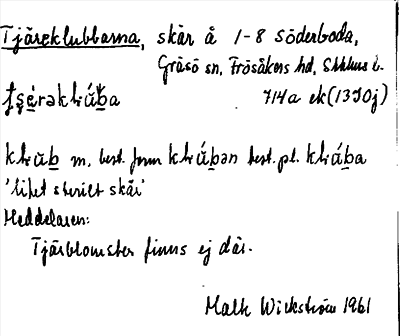 Tjäreklubbarna, skär å 1-8 Söderboda,
Gräsö sn, Frösåkers hd, Sthlms l.
714a ek (13I0j)
m, best. form best. pl.
'litet sterilt skär'
Meddelaren:
Tjärblomster finns ej där.
Malk Wickström 1961